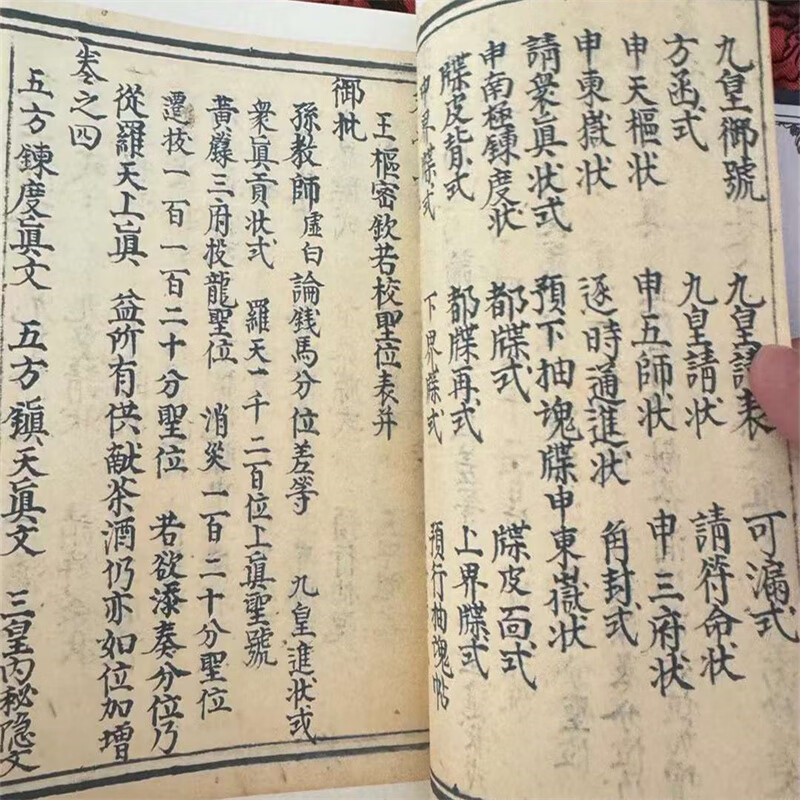 九皇御號 九皇請表 可漏式
方函式 九皇請状 請符命状
申天樞状 申五師状 申三府状
申東嶽状 逐時通進状 角封式
請衆眞状式 預下抽魂牒申東嶽状
申南極鍊度状 都牒式 牒皮面式
牒皮背式 都牒再式 上界牒式
中界牒式 下界牒式 預行抽魂帖
王樞密欽若校聖位表并
御批
孫教師虛白論錢馬分位差等 九皇進状或
衆眞貢状式 羅天一千二百位上眞聖號
黃籙三府投龍聖位 消災一百二十分聖位
遷拔一百一百二十分聖位 若欲添奏分位乃
從羅天上眞 益所有供献茶酒仍亦如位加增
卷之四
五方鍊度眞文 五方鎮天眞文 三皇内秘隐文